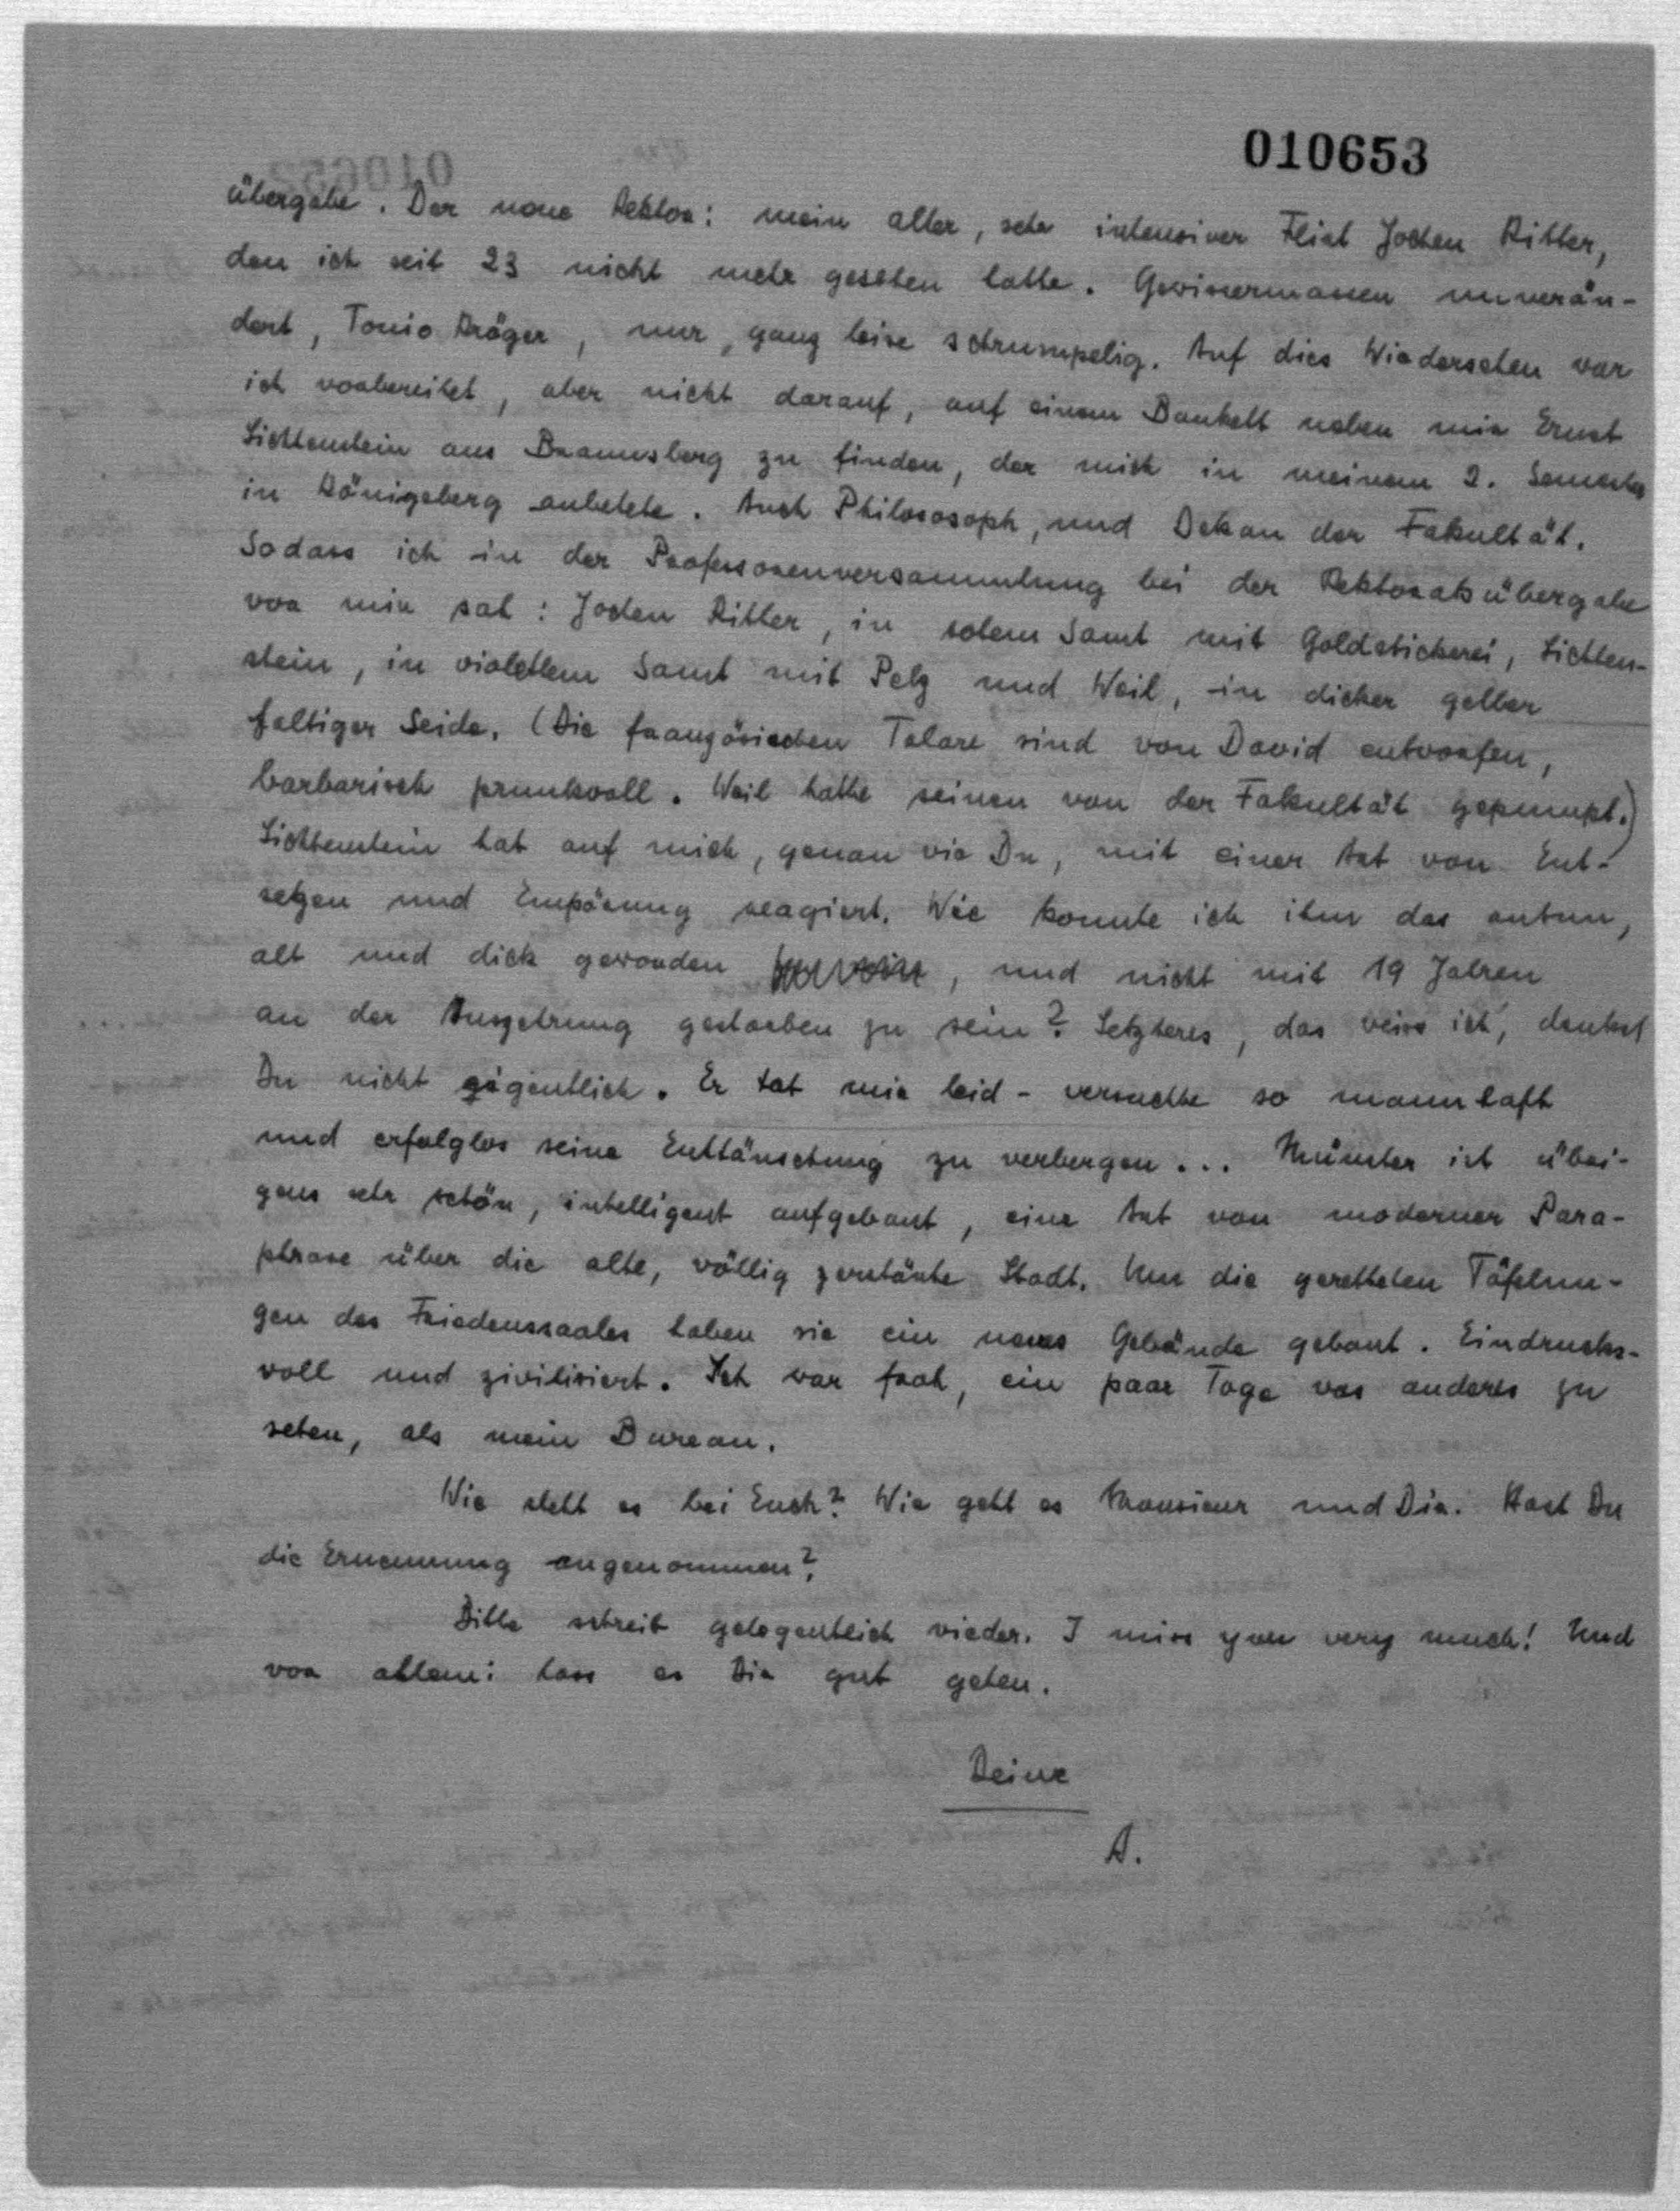 010653
übergabe. Der neue Rektor: mein alter, sehr intensiver Flirt Jochen Ritter,
den ich seit 23 nicht mehr gesehen hatte. Gewissermassen unverän-
dert, Tonio Kröger, nur, ganz leise schrumpelig. Auf dies Wiedersehen war
ich vorbereitet, aber nicht darauf, auf einem Bankett neben mir Ernst
Lichtenstein aus Braunsberg zu finden, der mich in meinem 2. Semester
in Königsberg anbetete. Auch Philososoph, und Dekan der Fakultät.
Sodass ich in der Professorenversammlung bei der Rektoratsübergabe
vor mir sah: Jochen Ritter, in rotem Samt mit Goldstickerei, Lichten-
stein, in violettem Samt mit Pelz und Weil, in dicker gelber
faltiger Seide. (Die französischen Talare sind von David entworfen,
barbarisch prunkvoll. Weil hatte seinen von der Fakultät gepumpt.)
Lichtenstein hat auf mich, genau wie Du, mit einer Art von Ent-
setzen und Empörung reagiert. Wie konnte ich ihm das antun,
alt und dick geworden , und nicht mit 19 Jahren
an der Auszehrung gestorben zu sein? Letzteres, das weiss ich, denkst
Du nicht eigentlich. Er tat mir leid - versuchte so mannhaft
und erfolglos seine Enttäuschung zu verbergen... Münster ist übri-
gens sehr schön, intelligent aufgebaut, eine Art von moderner Para-
phrase über die alte, völlig zerstörte Stadt. Um die geretteten Täfelun-
gen des Friedenssaales haben sie ein neues Gebäude gebaut. Eindrucks-
voll und zivilisiert. Ich war froh, ein paar Tage was anderes zu
sehen, als mein Bureau.
Wie steht es bei Euch? Wie geht es Monsieur und Dir. Hast Du
die Ernennung angenommen?
Bitte schreib gelegentlich wieder. I miss you very much! Und
vor allem: lass es Dir gut gehen.
Deine
A.